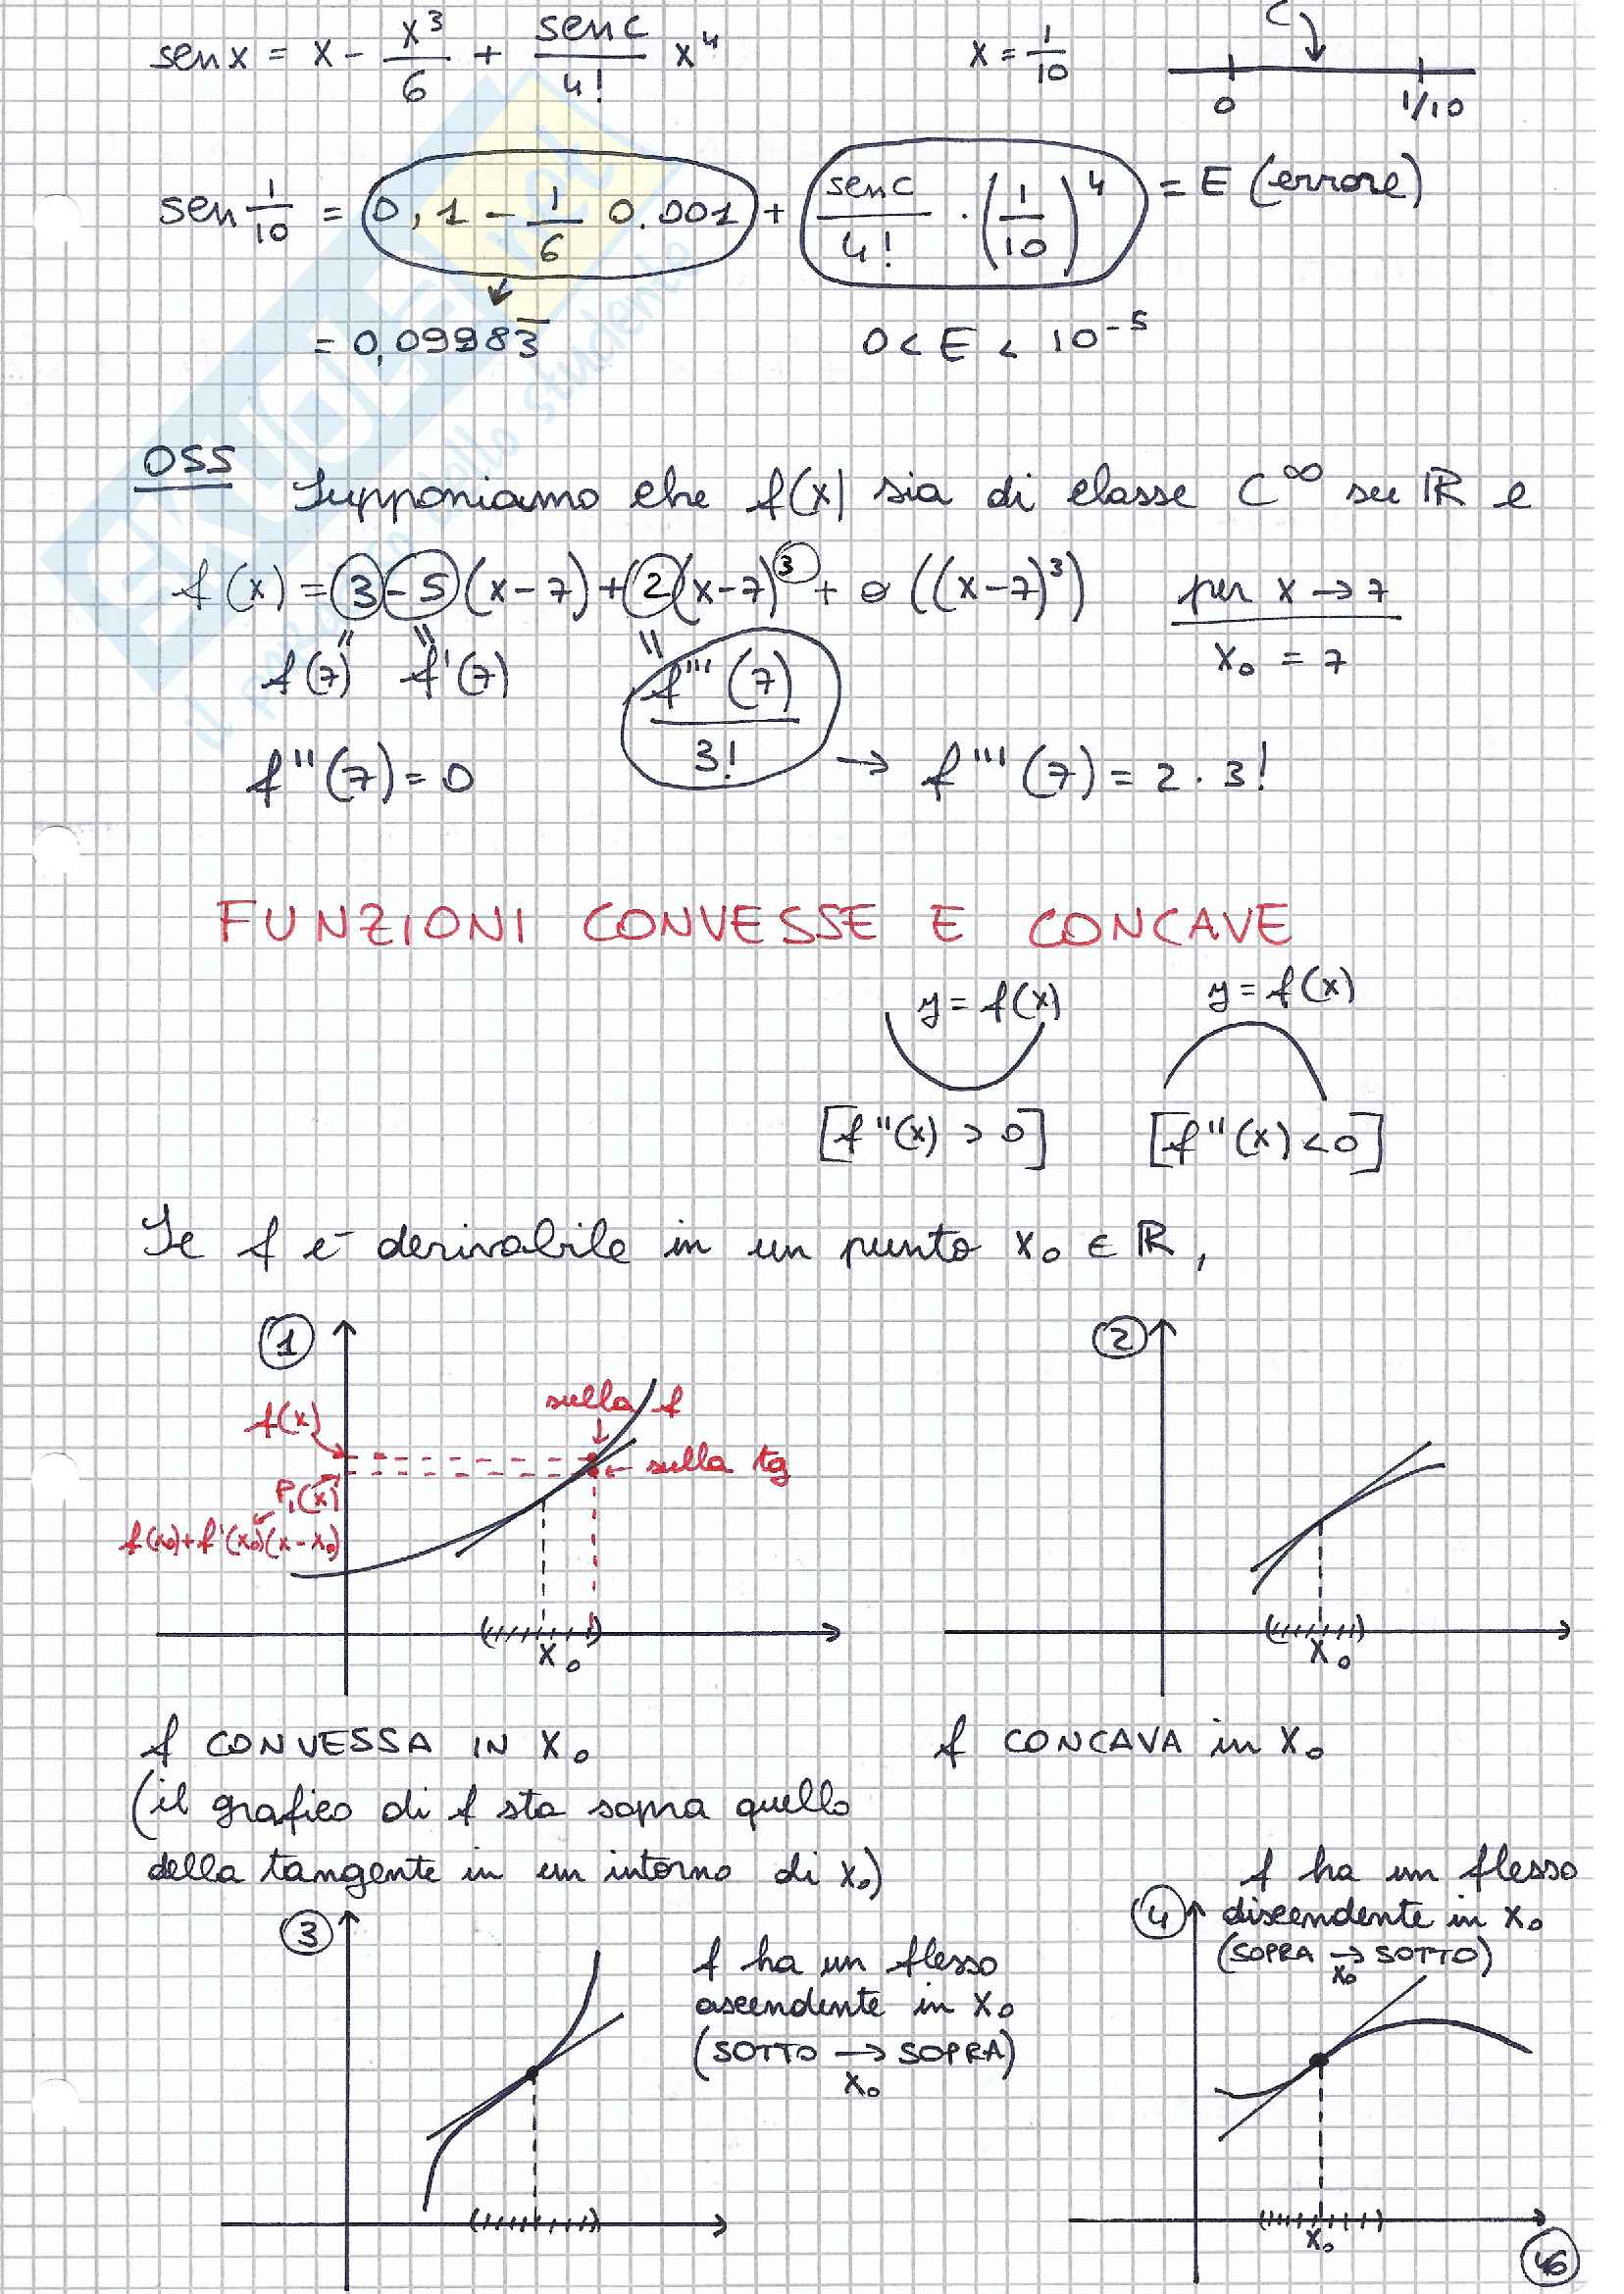 sen x = x - x³/6 + sen c/4! x⁴    x = 1/10    c    0    1/10
sen 1/10 = 0,1 - 1/6 0.001 + sen c/4! · (1/10)⁴ = E (errore)
= 0,09983̅    0 < E < 10⁻⁵
OSS Supponiamo che f(x) sia di classe C^∞ su ℝ e
f(x) = 3 - 5(x-7) + 2(x-7)³ + o((x-7)³)    per x → 7
f(7)    f'(7)    f'''(7)/3!    x₀ = 7
f''(7) = 0    → f'''(7) = 2 · 3!
FUNZIONI CONVESSE E CONCAVE
y = f(x)    y = f(x)
[f''(x) > 0]    [f''(x) < 0]
Se f è derivabile in un punto x₀ ∈ ℝ,
1    2
sulla f
f(x)
sulla tg
P₁(x)
f(x₀)+f'(x₀)(x-x₀)
x₀    x₀
f CONVESSA IN x₀    f CONCAVA in x₀
(il grafico di f sta sopra quello
della tangente in un intorno di x₀)
3
f ha un flesso
ascendente in x₀
(SOTTO → SOPRA)
x₀
4
f ha un flesso
discendente in x₀
(SOPRA → SOTTO)
x₀
x₀
46